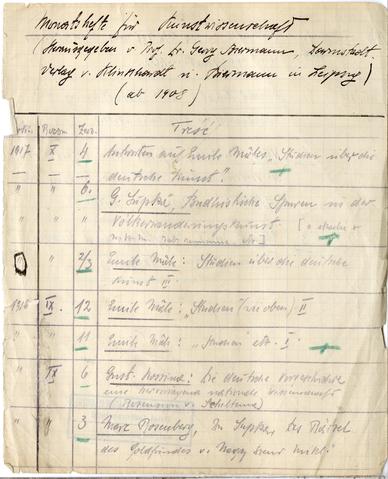 Monatshefte für Kunstwissenschaft
(Herausgegeben v. Prof. Dr. Georg Biermann, Darmstadt.
Verlag v. Klinkhardt u. Biermann in Leipzig)
(ab 1908)
Roczn. Zesz. Treść
1917 X 4 Antworten auf Emile Mâles „Studien über die
deutsche Kunst".
" " 6. G. Supka, Spuren in der
Völkerwanderungskunst
" " 2/3 Emile Mâle: Studien über die deutsche
Kunst III
1916 IX. 12 Emile Mâle: „Studien" (wie oben) II
" " 11 Emile Mâle: „Studien" etc. I.
" IX 6 Gust. Kossina: Die deutsche Vorgeschichte
eine hervorragend nationale Wissenschaft
" " 3 Marc Rosenberg, Das Rätsel
des Goldfundes v. Nagy Szent Mikl."